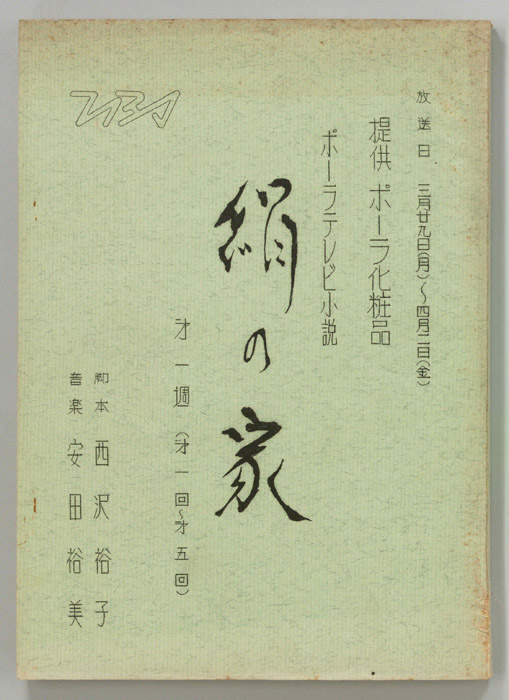 放送日 三月廿九日(月)～四月二日(金)
提供 ポーラ化粧品
ポーラテレビ小説
絹の家
才一週(才一回～才五回)
脚本 西沢裕子
音楽 安田裕美
TBS